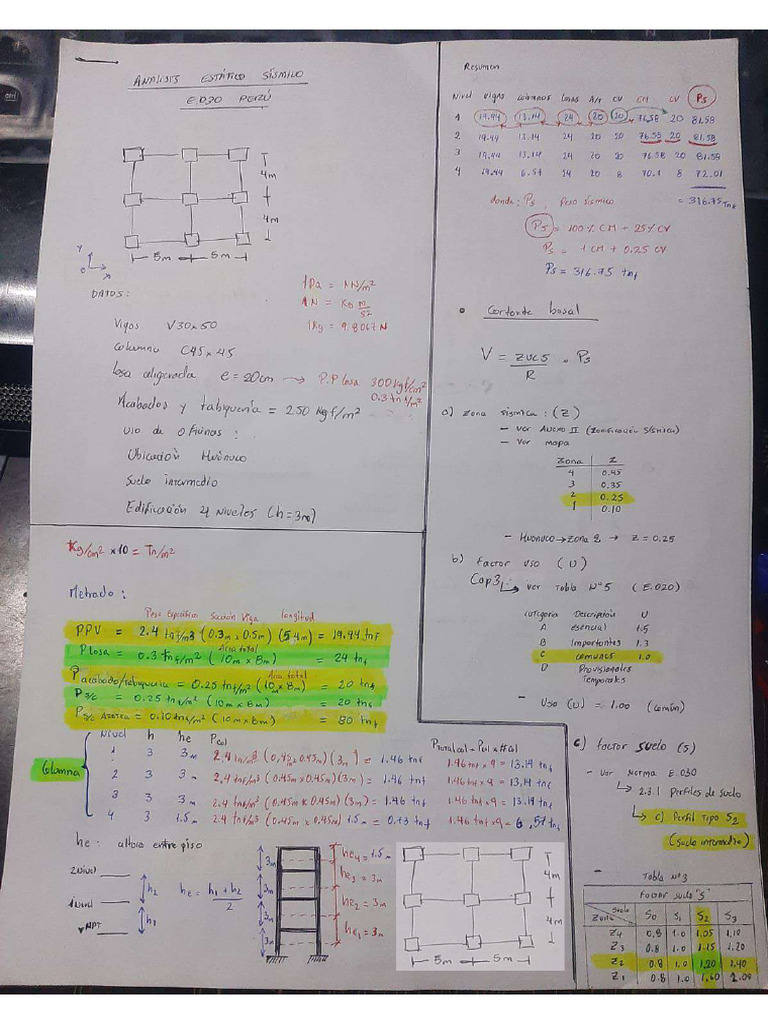 ANALISIS ESTÁTICO SÍSMICO
E.030 PERÚ
4m
4m
5m 5m
Y
0 X
DATOS:
1Pa = 1N/m²
1N = Kg m/s²
1Kg = 9.8067 N
Vigas V30x50
Columna C45x45
Losa aligerada e = 20cm → P.P losa 300 kgf/cm²
0.3 tnf/m²
Acabados y tabiquería = 250 kgf/m²
Uso de oficinas:
Ubicación Huánuco
Suelo intermedio
Edificación 4 niveles (h=3m)
Kg/cm² x10 = Tn/m²
Metrado:
Peso Específico Sección Viga longitud
PPV = 2.4 tnf/m3 (0.3m x 0.5m) (54m) = 19.44 tnf
Área total
Plosa = 0.3 tnf/m² (10m x 8m) = 24 tnf
Área total
Pacabado/tabiquería = 0.25 tnf/m² (10m x 8m) = 20 tnf
Ps/c = 0.25 tnf/m² (10m x 8m) = 20 tnf
Ps/c Azotea = 0.10 tnf/m² (10m x 8m) = 80 tnf
Columna
Nivel h he Pcol Ptotal col = Pcol x #Col
1 3 3m 2.4 tnf/m3 (0.45m x 0.45m) (3m) = 1.46 tnf 1.46 tnf x 9 = 13.14 tnf
2 3 3m 2.4 tnf/m3 (0.45m x 0.45m) (3m) = 1.46 tnf 1.46 tnf x 9 = 13.14 tnf
3 3 3m 2.4 tnf/m3 (0.45m x 0.45m) (3m) = 1.46 tnf 1.46 tnf x 9 = 13.14 tnf
4 3 1.5m 2.4 tnf/m3 (0.45m x 0.45m) 1.5m = 0.73 tnf 1.46 tnf x 9 = 6.57 tnf
he: altura entrepiso
2Nivel
1Nivel
NPT
h2
h1
he = h1 + h2 / 2
3m
3m
3m
3m
he4 = 1.5m
he3 = 3m
he2 = 3m
he1 = 3m
4m
4m
5m 5m
Resumen
Nivel Vigas columnas Losas A/T CV CM CV Ps
1 19.44 13.14 24 20 20 76.58 20 81.58
2 19.44 13.14 24 20 20 76.58 20 81.58
3 19.44 13.14 24 20 20 76.58 20 81.58
4 19.44 6.57 24 20 8 70.1 8 72.01
= 316.75 Tnf
donde: Ps, peso sísmico
Ps = 100% CM + 25% CV
Ps = 1 CM + 0.25 CV
Ps = 316.75 tnf
Cortante basal
V = ZUCS/R . Ps
a) Zona sísmica: (Z)
- Ver ANEXO II (Zonificación Sísmica)
- Ver mapa
Zona Z
4 0.45
3 0.35
2 0.25
1 0.10
- Huánuco → Zona 2 → Z = 0.25
b) factor uso (U)
Cap3. Ver Tabla N°5 (E.020)
Categoría Descripción U
A esencial 1.5
B Importantes 1.3
C comunes 1.0
D Provisionales
Temporales
- Uso (U) = 1.00 (común)
c) factor suelo (S)
- Ver Norma E.030
2.3.1 Perfiles de suelo
c) Perfil Tipo S2
(suelo intermedio)
- Tabla N°3
Factor suelo "S"
Suelo
Zona S0 S1 S2 S3
Z4 0.8 1.0 1.05 1.10
Z3 0.8 1.0 1.15 1.20
Z2 0.8 1.0 1.20 1.40
Z1 0.8 1.0 1.60 2.00